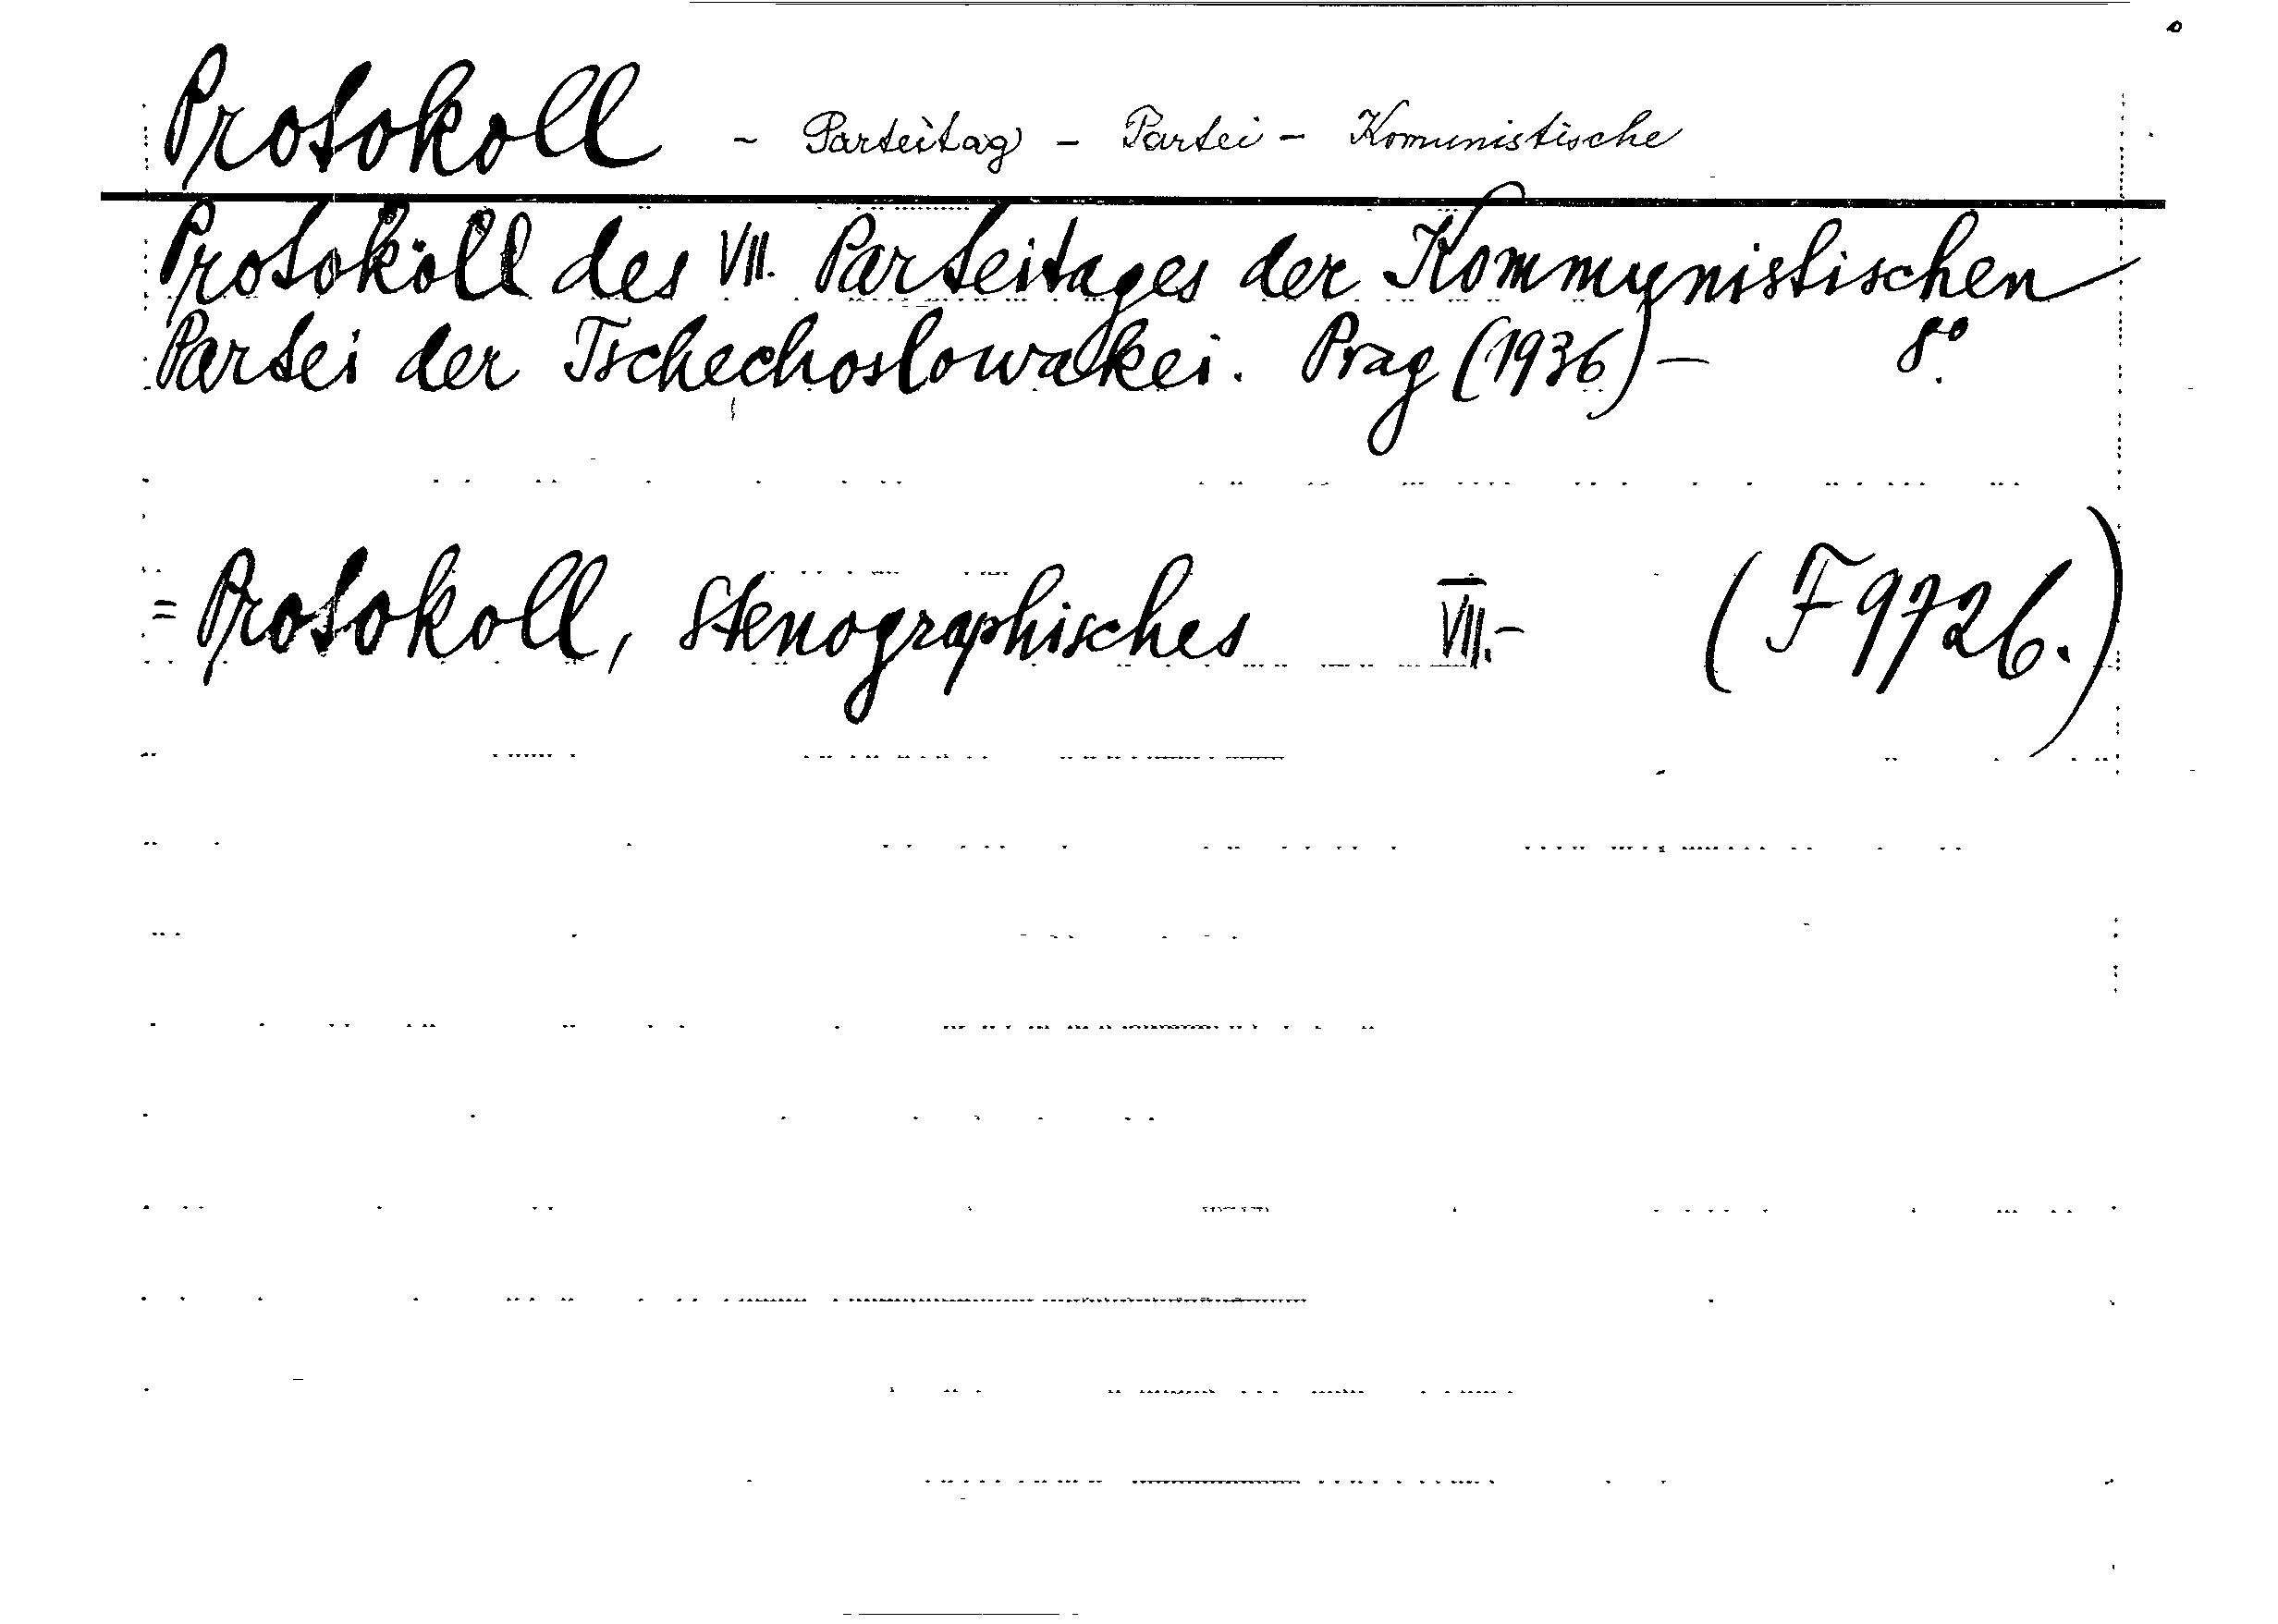 Protokoll - Parteitag - Partei - Komunistische
Protokoll des VII. Parteitages der Kommunistischen
Partei der Tschechoslowakei. Prag (1936) — 8°.
= Protokoll, Stenographisches VII.- (F 9726.)